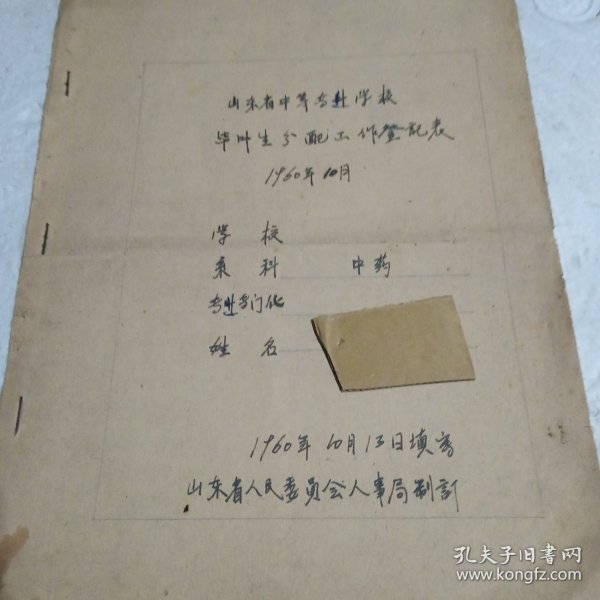 山东省中等专业学校
毕业生分配工作登記表
1960年10月
学校
系科 中药
专业专门化
姓名
1960年10月13日填写
山东省人民委员会人事局制訂
孔夫子旧书网
www.kongfz.com